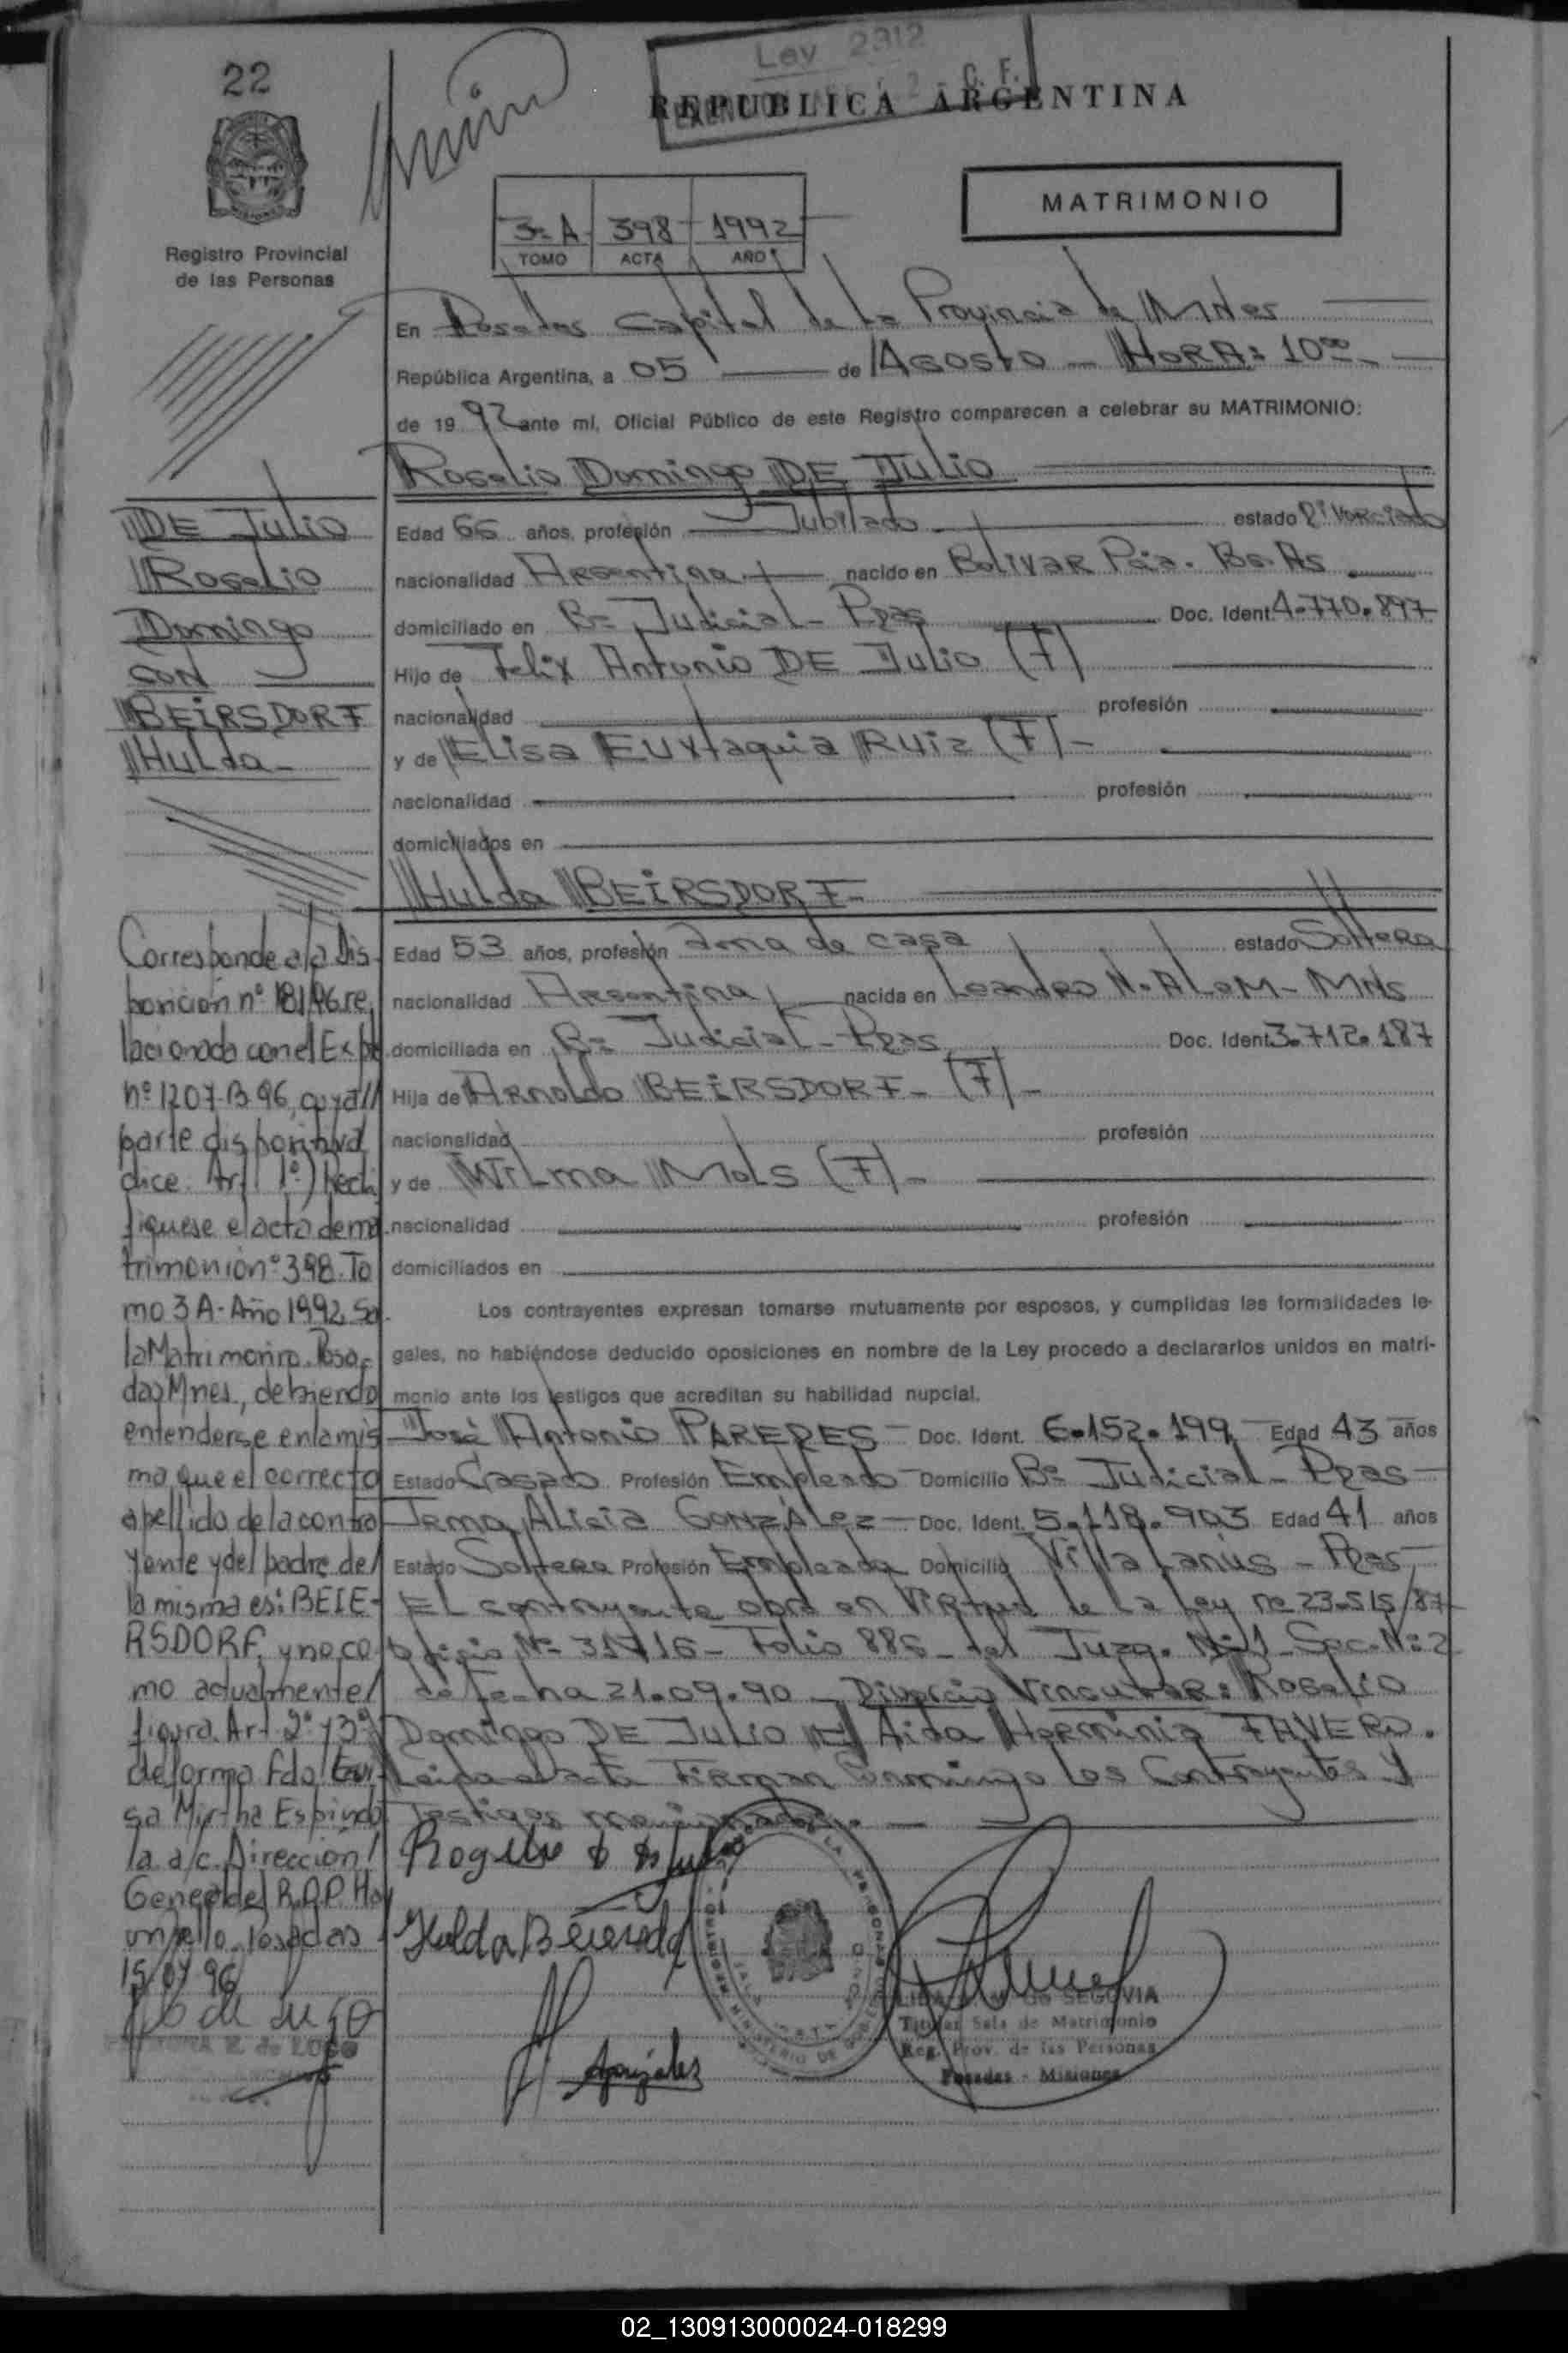 22
Ley 2312
REPUBLICA ARGENTINA
MATRIMONIO
3º A 398 1992
TOMO ACTA AÑO
Registro Provincial
de las Personas
En Posadas Capital de la Provincia de Mnes
República Argentina, a 05 de Agosto - HORA: 10ºº
de 1992 ante mí, Oficial Público de este Registro comparecen a celebrar su MATRIMONIO:
Rogelio Domingo DE Julio
Edad 66 años, profesión Jubilado estado Divorciado
nacionalidad Argentina nacido en Bolivar Pcia. Bs. As
domiciliado en Bº Judicial - Pdas Doc. Ident. 4.770.897
Hijo de Felix Antonio DE Julio (F)
nacionalidad profesión
y de Elisa Euxtaquia Ruiz (F) -
nacionalidad profesión
domiciliados en
Hulda BEIRSDORF -
Edad 53 años, profesión ama de casa estado Soltera
nacionalidad Argentina nacida en Leandro N. ALEM - MNS
domiciliada en Bº Judicial - Pdas Doc. Ident. 3.712.187
Hija de Arnoldo BEIRSDORF - (F) -
nacionalidad profesión
y de Wilma Mols (F) -
nacionalidad profesión
domiciliados en
Los contrayentes expresan tomarse mutuamente por esposos, y cumplidas las formalidades le-
gales, no habiéndose deducido oposiciones en nombre de la Ley procedo a declararlos unidos en matri-
monio ante los testigos que acreditan su habilidad nupcial.
José Antonio PAREDES - Doc. Ident. 6.152.199 Edad 43 años
Estado Casado Profesión Empleado Domicilio Bº Judicial - Pdas
Irma Alicia GONZÁLEZ - Doc. Ident. 5.118.903 Edad 41 años
Estado Soltera Profesión Empleada Domicilio Villa Lanús - Pdas
El contrayente obra en Virtud de la Ley nº 23.515/87
Oficio Nº 31716 - Folio 886 - del Juzg. Nº 1 - Sec. Nº 2
de fecha 21.09.90 - Divorcio Vincular: Rogelio
Domingo DE Julio Aida Herminia FAVERO.
Leida el acta Firman Conmingo los Contrayentes y
Testigos mencionados. -
DE Julio
Rogelio
Domingo
CON
BEIRSDORF
Hulda -
Corresponde a la Dis-
posición nº 181/96 re
lacionada con el Expte
nº 1207-B-96, cuya
parte dispositiva
dice: Art. 1º) Recti
fiquese el acta de ma
trimonio nº 398 - To
mo 3A - Año 1992, Sa
la Matrimonio. Posa-
das Mnes., debiendo
entenderse en la mis
ma que el correcto
apellido de la contra
yente y del padre de
la misma es: BEIE-
RSDORF, y no co
mo actualmente
figura. Art. 2º y 3º
de forma Fdo.
sa Mirtha Espindo
la a/c. Dirección
General del R.P.P. Hay
un sello. Posadas
15/07/96
Hulda
Gonzalez
SEGOVIA
Titular Sala de Matrimonio
Reg. Prov. de las Personas
Posadas - Misiones
02_130913000024-018299